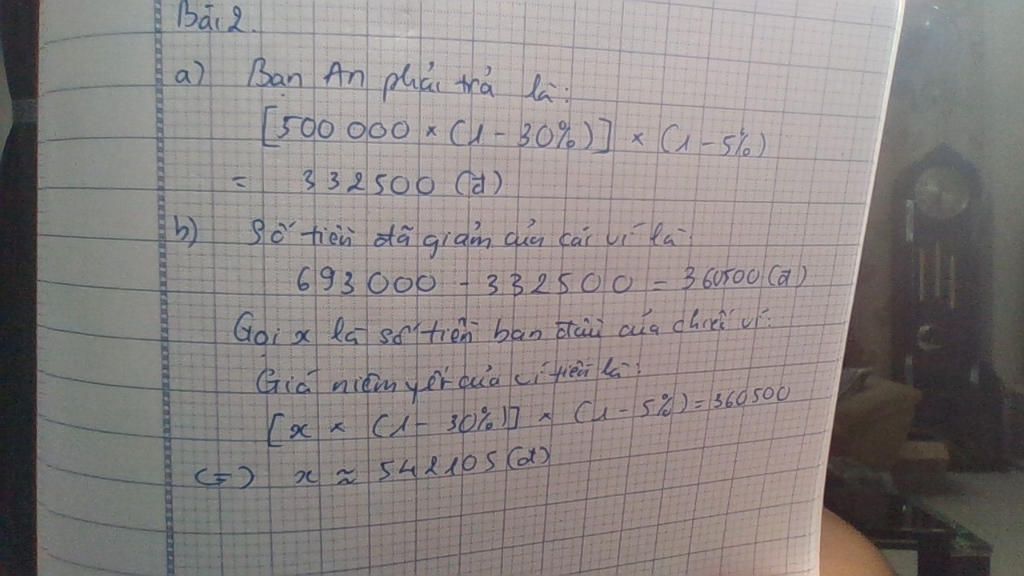 Bài 2.
a) Bạn An phải trả là:
[500 000 × (1 - 30%)] × (1 - 5%)
= 332500 (đ)
b) Số tiền đã giảm của cái ví là:
693 000 - 332500 = 360500 (đ)
Gọi x là số tiền ban đầu của chiếc ví:
Giá niêm yết của ví tiền là:
[x × (1 - 30%)] × (1 - 5%) = 360500
(=) x ≈ 542105 (đ)